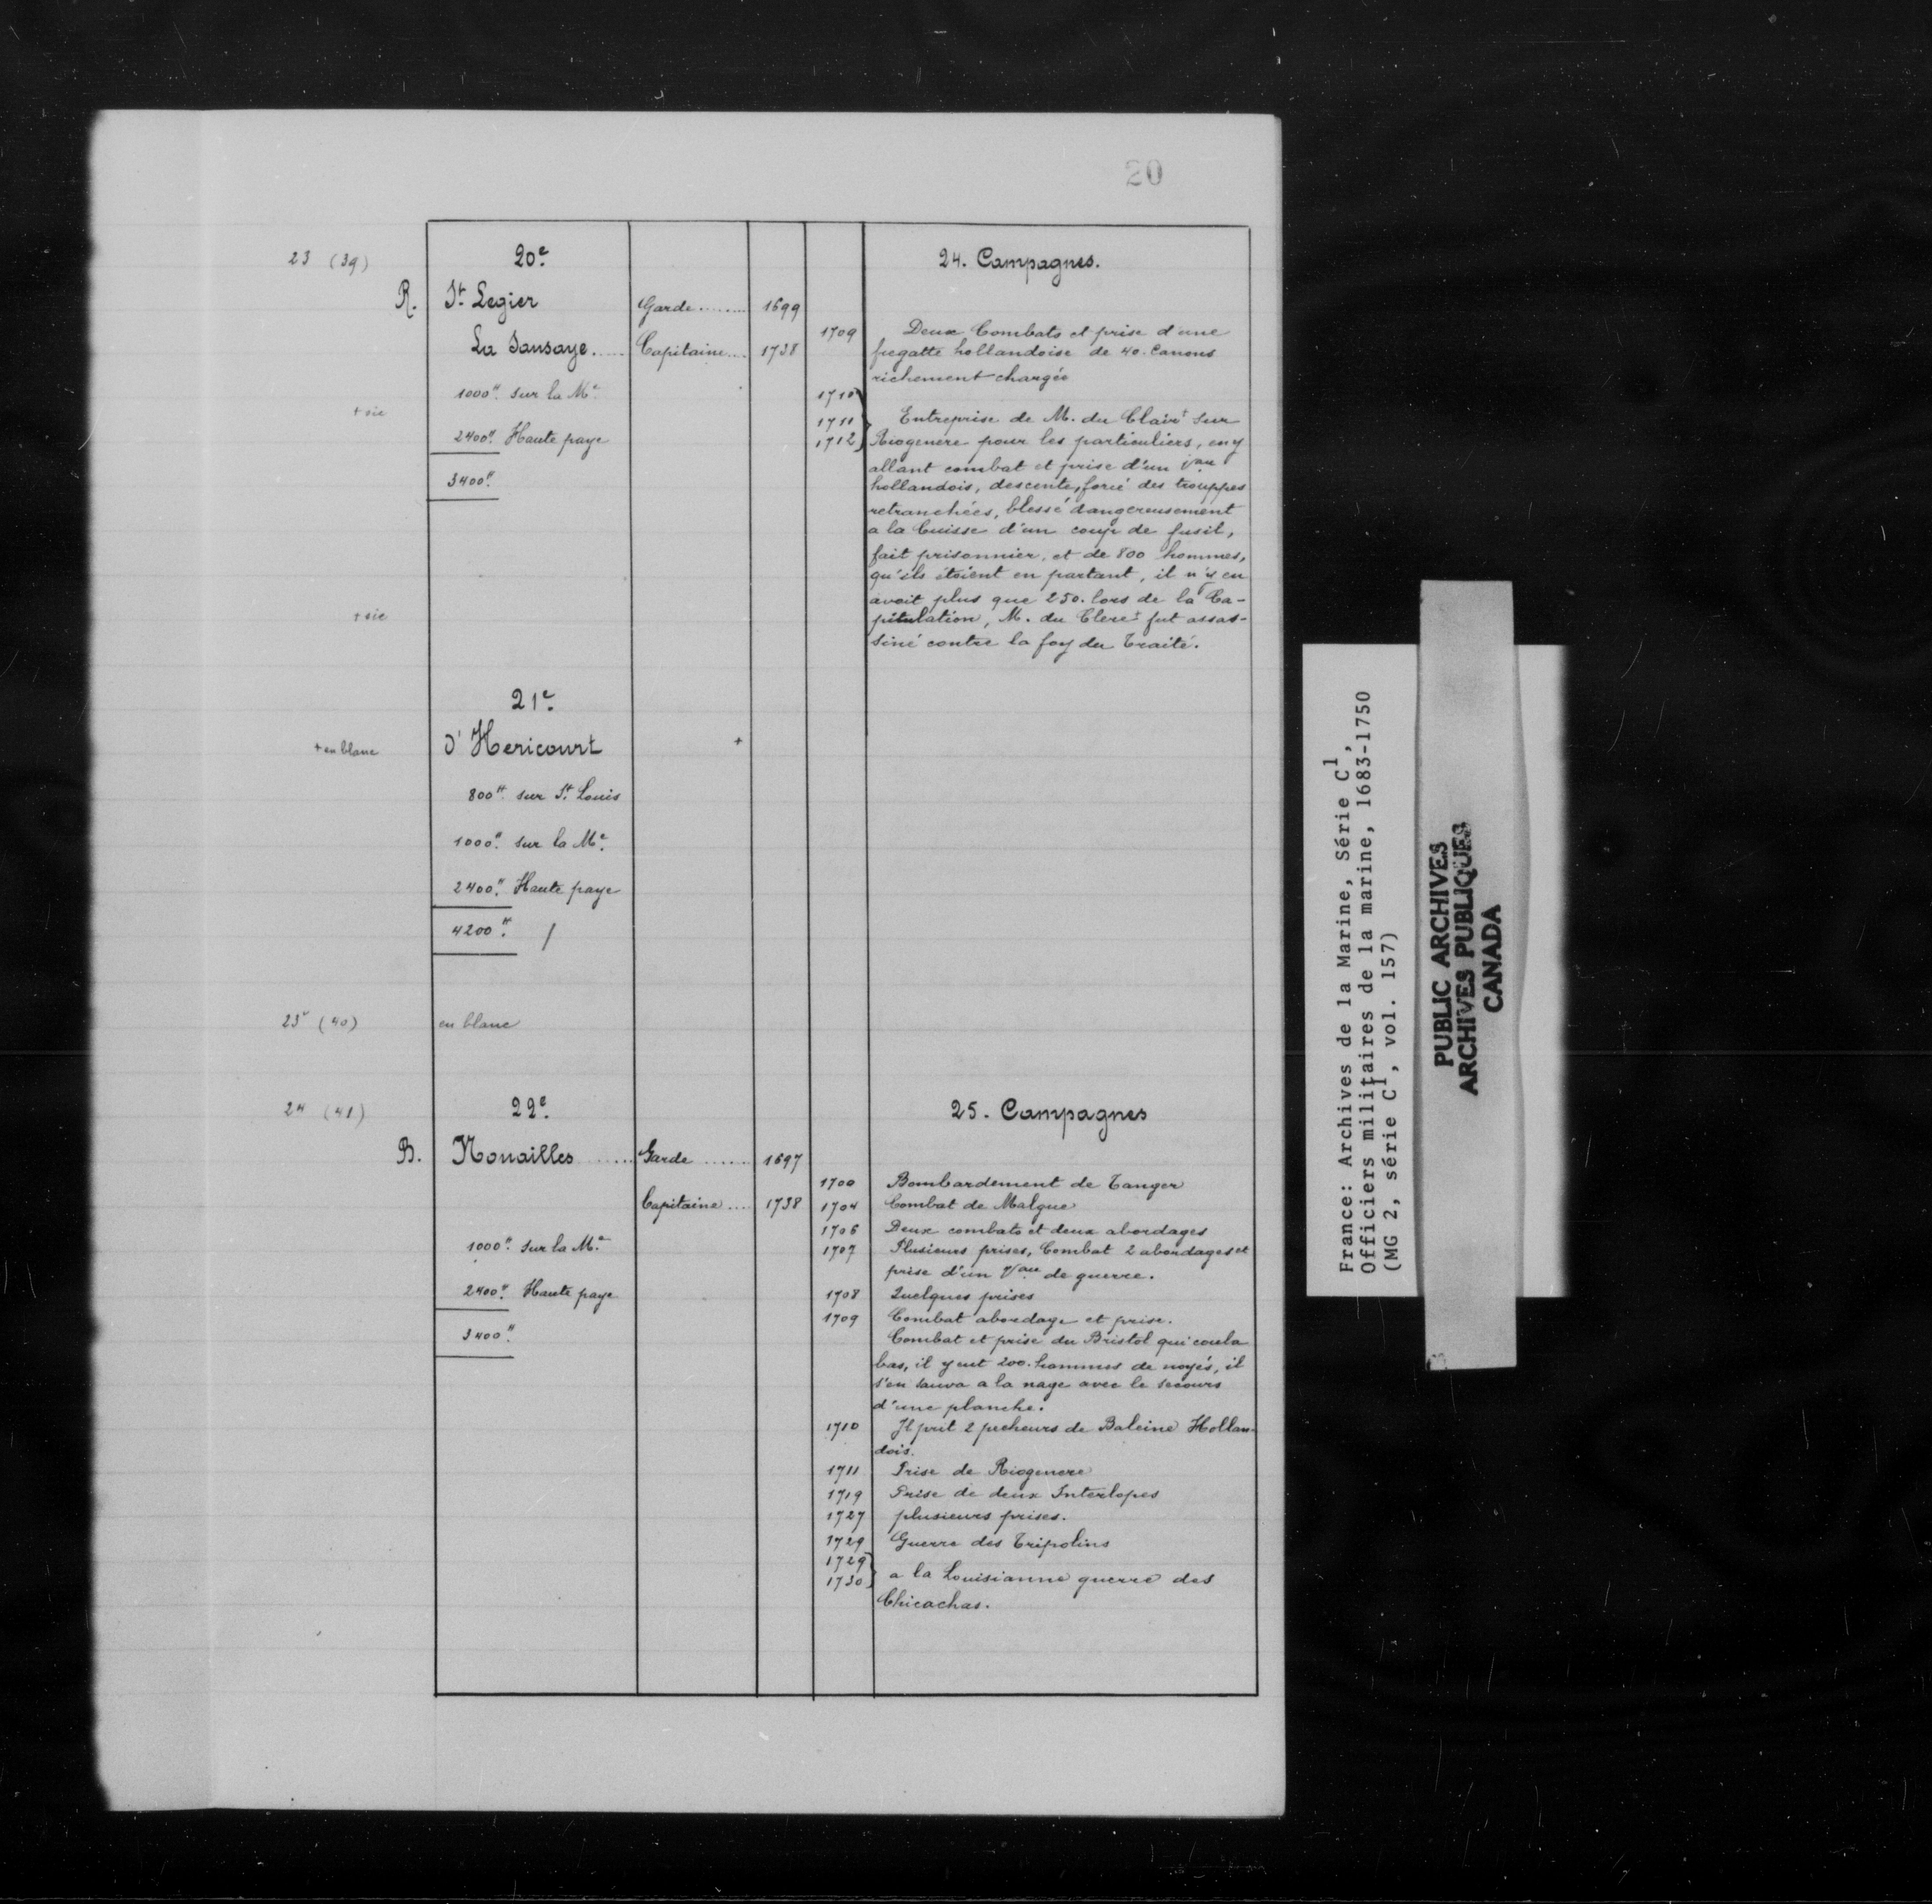 20
23 (39)
20e.
24. Campagnes.
R. St. Legier
Garde ........ 1699
La Sausaye ..... Capitaine ... 1738
1709 Deux Combats et prise d'une
fregatte hollandoise de 40. Canons
richement chargée
1000#. sur la Me.
+ sic
2400#. Haute paye
3400#.
1710
1711
1712
Entreprise de M. du Clair+ sur
Riogenere pour les particuliers, en y
allant combat et prise d'un vau
hollandois, descente, forcé des trouppes
retranchées, blessé dangereusement
a la Cuisse d'un coup de fusil,
fait prisonnier, et de 800 hommes,
qu'ils étoient en partant, il n'y en
avoit plus que 250. lors de la Ca-
+ sic
pitulation, M. du Clerc+ fut assas-
siné contre la foy du Traité.
21e.
+ en blanc
d'Hericourt +
800#. sur St. Louis
1000#. sur la Me.
2400#. Haute paye
4200#. /
23v (40) en blanc
24 (41)
22e.
25. Campagnes
B. Nouailles ...... Garde ....... 1697
1700 Bombardement de Tanger
Capitaine .... 1738
1704 Combat de Malgue
1706 Deux combats et deux abordages
1000#. sur la Me.
1707 Plusieurs prises, Combat 2 abordages et
prise d'un Vau de guerre.
2400#. Haute paye
1708 Quelques prises
1709 Combat abordage et prise.
3400#.
Combat et prise du Bristol qui coula
bas, il y eut 200. hommes de noyés, il
s'en sauva a la nage avec le secours
d'une planche.
1710 Il prit 2 pecheurs de Baleine Hollan-
dois.
1711 Prise de Riogenere
1719 Prise de deux Interlopes
1727 plusieurs prises.
1729 Guerre des Tripolins
1729
1730
a la Louisianne guerre des
Chicachas.
France: Archives de la Marine, Série C1,
Officiers militaires de la marine, 1683-1750
(MG 2, série C1, vol. 157)
PUBLIC ARCHIVES
ARCHIVES PUBLIQUES
CANADA